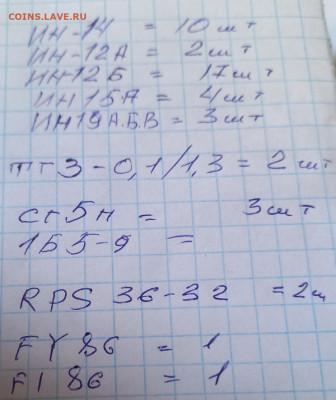 COINS.LAVE.RU
ИН-14 = 10 шт
ИН-12А = 2 шт
ИН12Б = 17 шт
ИН15А = 4 шт
ИН19А.Б.В = 3 шт
ТГЗ-0,1/1,3 = 2 шт
СГ5Н = 3 шт
1Б5-9 =
RPS 36-32 = 2ш
FY 86 = 1
FI 86 = 1